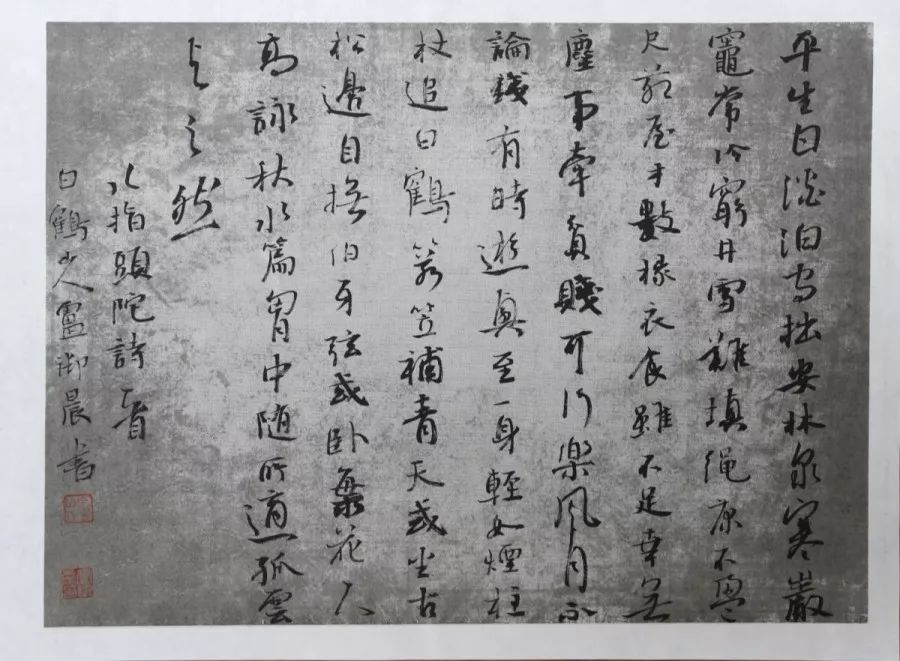 平生甘淡泊守拙安林泉寒巖
竈常冷窮井雪難填繩床不盈
尺茆屋才數椽衣食雖不足幸無
塵事牽貧賤可行樂風月不
論錢有時遊興至一身輕如煙拄
杖追白鶴箬笠補青天或坐古
松邊自撫伯牙弦或臥花
高詠秋水篇胸中隨所適孤雲
與之然
八指頭陀詩一首
白鶴山人盧御晨書